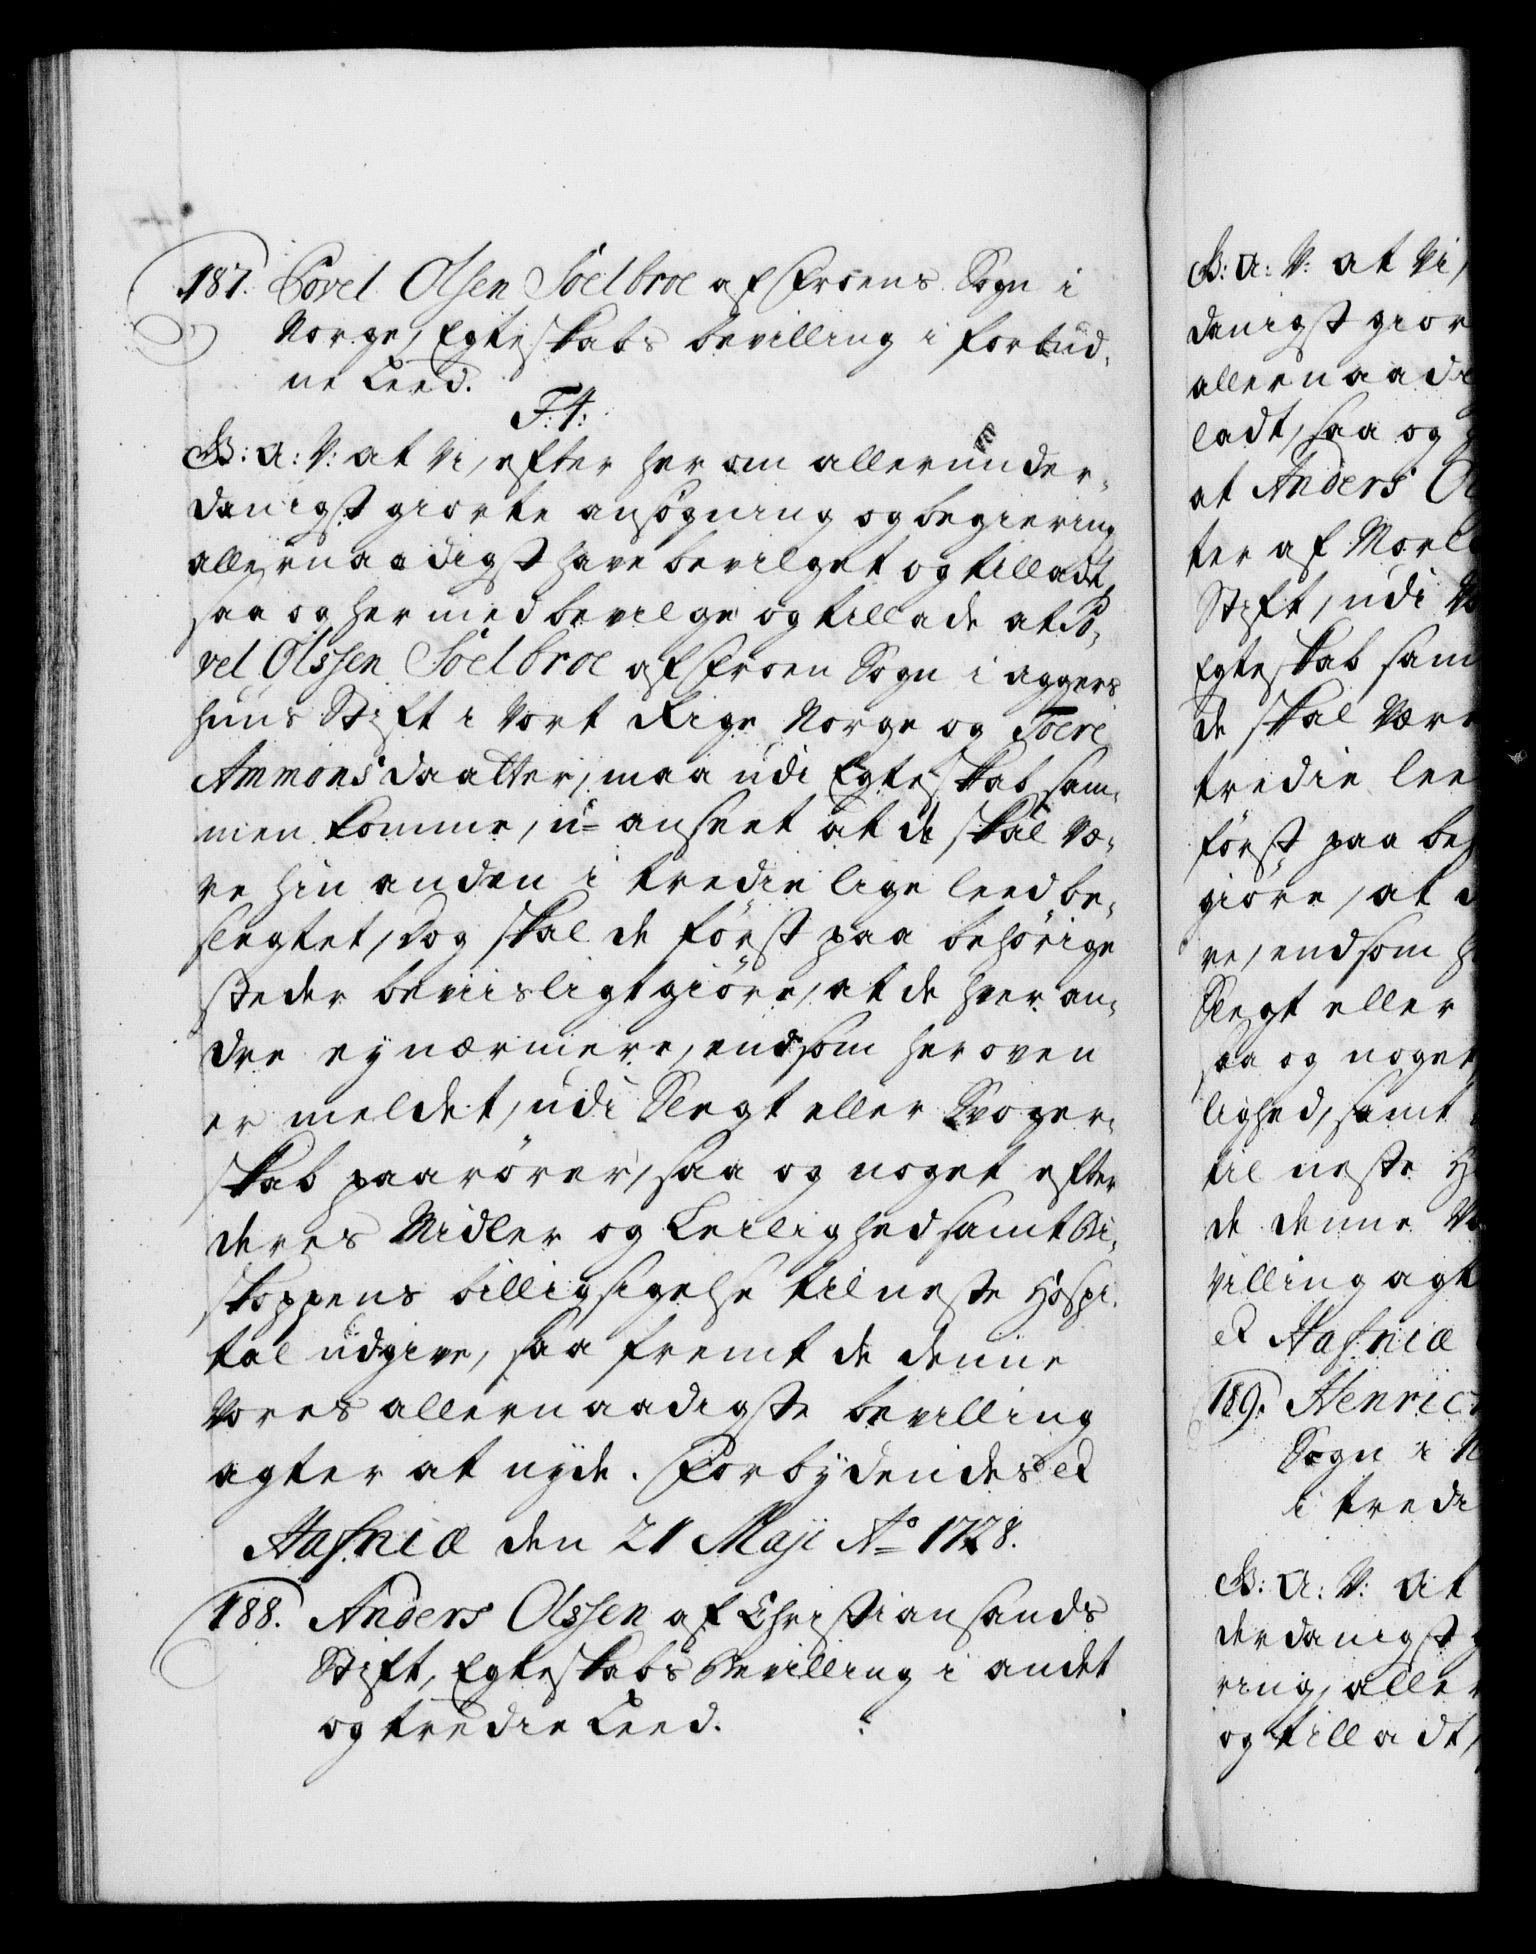 187. Povel Olsen Soelbroe af Froens Sogn i
Norge, Egteskabs bevilling i forbud-
ne Leed.
F:4:
G: A: V: at Vi, efter herom allerunder-
danigst giorte ansögning og begiering
allernaadigst have bevilget og tilladt,
saa og hermed bevilge og tillade at Po-
vel Olssen Soelbroe af Froen Sogn i Aggers
huus Stift i Vort Rige Norge og Toere
Ammonsdaatter, maa udi Egteskab sam-
men komme, u-anseet at de skal væ-
re hin anden i tredie lige leed be-
slegtet, dog skal de först paa behörige
steder beviisligtgiöre, at de hver an-
dre ey nærmere, end som heroven
er meldet, udi Slegt eller Svoger-
skab paarörer, saa og noget efter
deres Midler og Leilighed samt Bi-
skoppens billigsigelse til neste Hospi-
tal udgive, saa fremt de denne
Vores allernaadigste bevilling
agter at nyde. Forbydendes et
Hafniæ den 21 Maji Ao 1728.
188. Anders Olssen af Christiansands
Stift, Egteskabs Bevilling i andet
og tredie Leed.
G: A: V: at Vi,
danigst gior
allernaadi
ladt, saa og
at Anders Ol
ter af
Stift, udi
Egteskab sam
de skal være
tredie lee
först paa beh
giöre, at d
re, end som h
Slegt eller
saa og noget
lighed, samt
til neste H
de denne Vo
villing agt
et Hafniæ
189. Henric
Sogn i N
i tredi
G: A: V: at
derdanigst g
ring, aller
og tilladt,